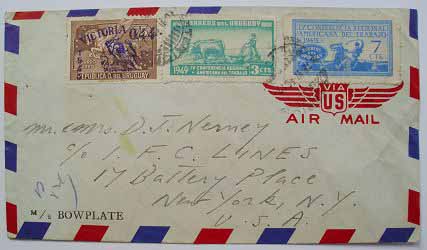 VICTORIA
REPUBLICA DEL URUGUAY
CORREOS DEL URUGUAY
1949 IV CONFERENCIA REGIONAL
AMERICANA DEL TRABAJO 3 CTS.
IV CONFERENCIA REGIONAL
AMERICANA DEL TRABAJO
1949 7
CTS.
VIA
US
AIR MAIL
D. J. Nerney
c/o I. F. C. LINES
17 Battery Place
New York, N.Y.
U.S.A.
M/s BOWPLATE